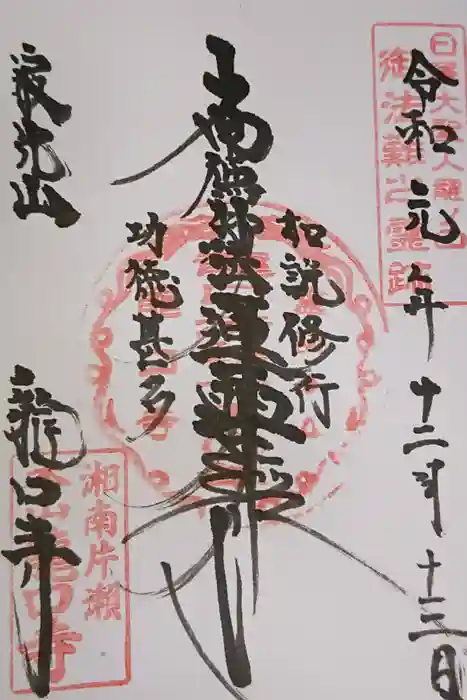 令和元年十二月十三日
日蓮大聖人龍ノ口
御法難之霊跡
如説修行
南無妙法蓮華経
功徳甚多
寂光山
龍口寺
湘南片瀬
龍口寺